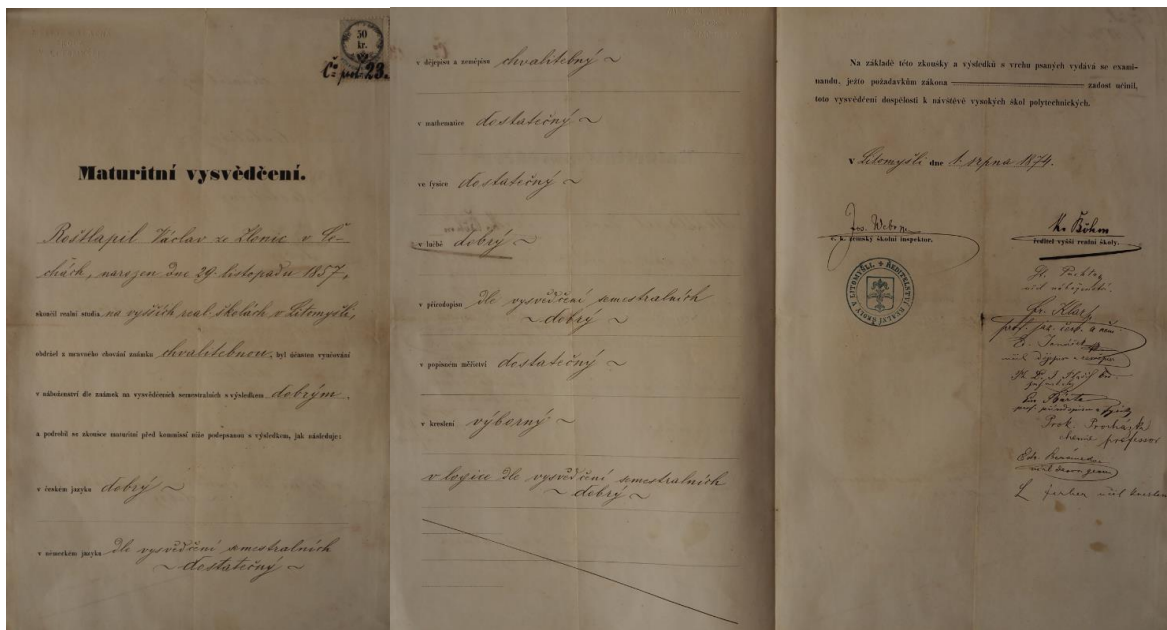 50
kr.
Maturitní vysvědčení.
Roštlapil Václav ze Zlonic v Če-
chách, narozen dne 29. listopadu 1857,
skončil realní studia na vyšších real. školách v Litomyšli,
obdržel z mravného chování známku chvalitebnou, byl účasten vyučování
v náboženství dle známek na vysvědčeních semestralních s výsledkem dobrým.
a podrobil se zkoušce maturitní před kommissí níže podepsanou s výsledkem, jak následuje:
v českém jazyku dobrý ~
v německém jazyku dle vysvědčení semestralních
~ dostatečný ~
v dějepisu a zeměpisu chvalitebný ~
v mathematice dostatečný ~
ve fysice dostatečný ~
v lučbě dobrý ~
v přírodopisu dle vysvědčení semestralních
~ dobrý ~
v popisném měřictví dostatečný ~
v kreslení výborný ~
v logice dle vysvědčení semestralních
~ dobrý ~
Na základě této zkoušky a výsledků s vrchu psaných vydává se exami-
nandu, ježto požadavkům zákona zadost učinil,
toto vysvědčení dospělosti k návštěvě vysokých škol polytechnických.
V Litomyšli dne 1. srpna 1874.
Jos. Weber
c. k. zemský školní inspektor.
ŘEDITELSTVÍ REALNÍ ŠKOLY V LITOMYŠLI
Böhm
ředitel vyšší realní školy.
Fr. Klar
Bárta
Prok. Procházka
chemie professor